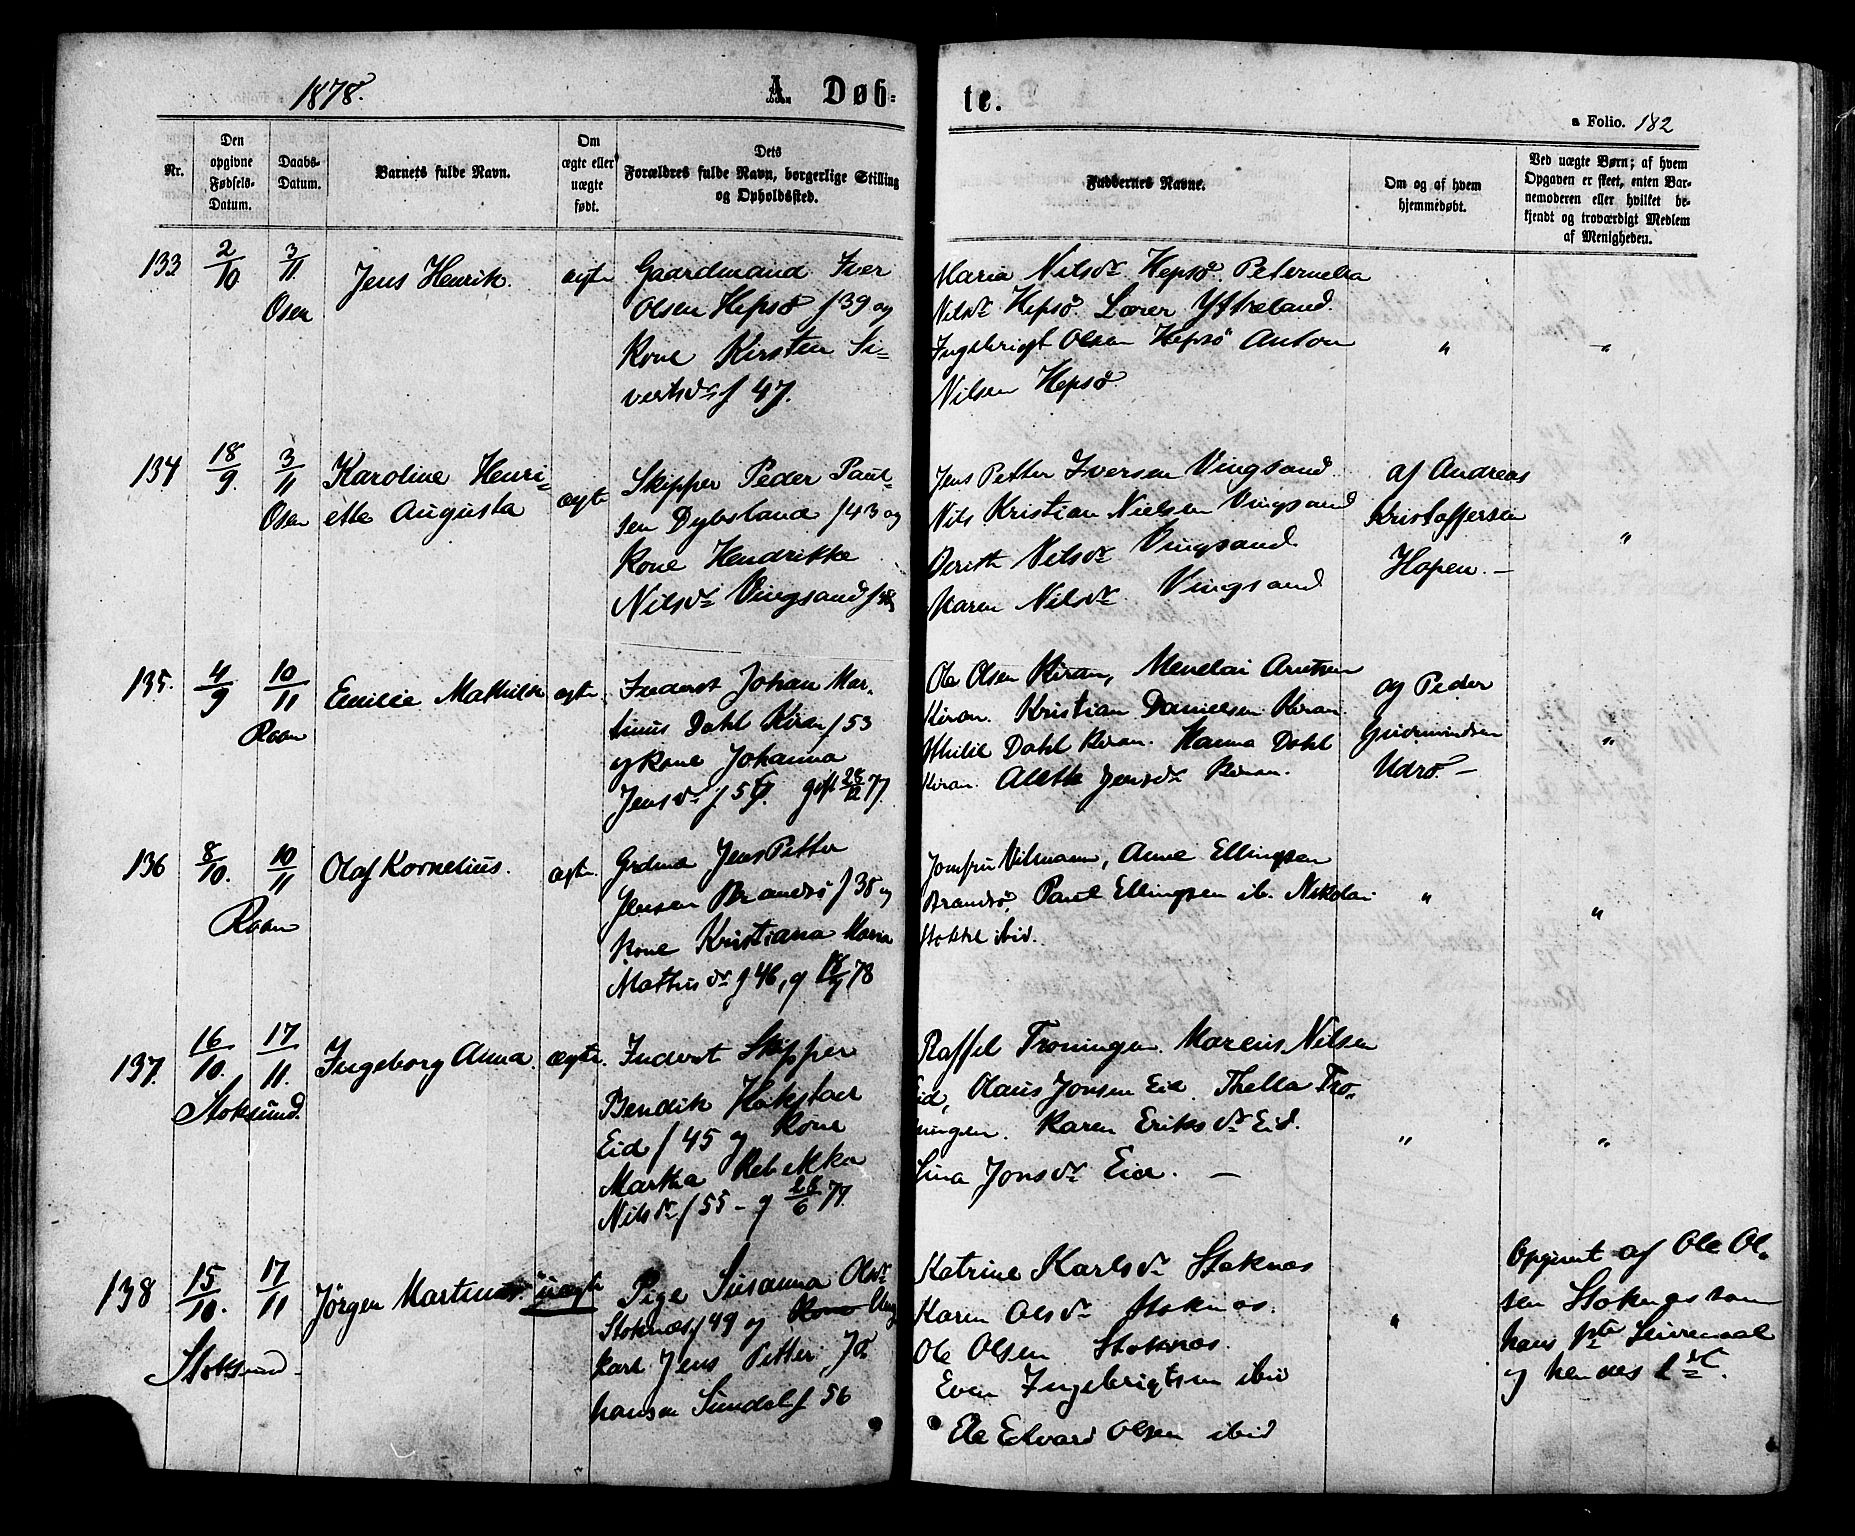 1878.
A. Døb=
te.
a Folio. 182
Nr.
Den
opgivne
Fødsels-
Datum.
Daabs-
Datum.
Barnets fulde Navn.
Om
ægte eller
uægte
født.
Dets
Forældres fulde Navn, borgerlige Stilling
og Opholdssted.
Faddernes Navne.
Om og af hvem
hjemmedøbt.
Ved uægte Børn; af hvem
Opgaven er skeet, enten Bar-
nemoderen eller hvilket be-
kjendt og troværdigt Medlem
af Menigheden.
133
2/10
3/11
Osen
Jens Henrik.
ægte
Gaardmand Iver
Olsen Hepsø f 39 og
Kone Kirsten Si-
vertsdr f 47.
Maria Nilsdr Hepsø Peternelia
Nilsdr Hepsø Lærer Ystreland.
Ingebrigt Olsen Hepsø Anton
Nilsen Hepsø
"
"
134
18/9
3/11
Osen
Karoline Henri-
ette Augusta
ægte
Skipper Peder Paul-
sen Dybesland f 43 og
Kone Hendrikke
Nilsdr Vingsand f 48
Jens Petter Iversen Vingsand
Nils Kristian Nielsen Vingsand
Berith Nilsdr Vingsand
Maren Nilsdr Vingsand
af Andreas
Kristoffersen
Hopen. -
"
135.
4/9
10/11
Roan
Emilie Mathilde
ægte
Inderst Johan Mar-
tinus Dahl Kiran f 53
og Kone Johanna
Jensdr f. 57. gift 28/12 77.
Ole Olsen Kiran, Menelai Arntsen
Kiran. Kristian Danielsen Kiran.
Dahl Kiran. Hanna Dahl
Kiran. Aleth Jensdr Kiran.
af Peder
Gudmundsen
Udrø -
"
136
8/10.
10/11
Roan
Olaf Kornelius.
ægte.
Grdmd Jens Petter
Jensen Brandsø f 38 og
Kone Kristiana Maria
Mathisdr f 46, g 78
Jomfru Vilmann, Anne Ellingsen
Brandsø, Paul Ellingsen ib. Nikolai
Stokke ibid.
"
"
137.
16/10.
17/11.
Stoksund.
Ingeborg Anna.
ægte.
Inderst Skipper
Bendik Hakstaer
Eid f 45 og Kone
Martha Rebekka
Nilsdr f 55 - g 28/6 77.
Raffel Troningen. Marcus Nilsen
Eid, Olaus Jonsen Eid. Thella Tro-
ningen. Karen Eriksdr Eid.
Lina Jonsdr Eid. -
"
"
138
15/10.
17/11
Stoksund -
Jørgen Martinus.
uægte
Pige Susanna Olsdr
Stoknæs f 49 og Kone Ung-
karl Jens Petter Jo-
hansen Sundal f 56
Katrine Karlsdr Stoknæs
Karen Olsdr Stoknæs.
Ole Olsen Stoknæs.
Even Ingebrigtsen ibid
Ole Edvard Olsen ibid
"
Opgivet af Ole Ol-
sen Stoknæs som
hans 1ste Leiermaal
og hendes 2det.